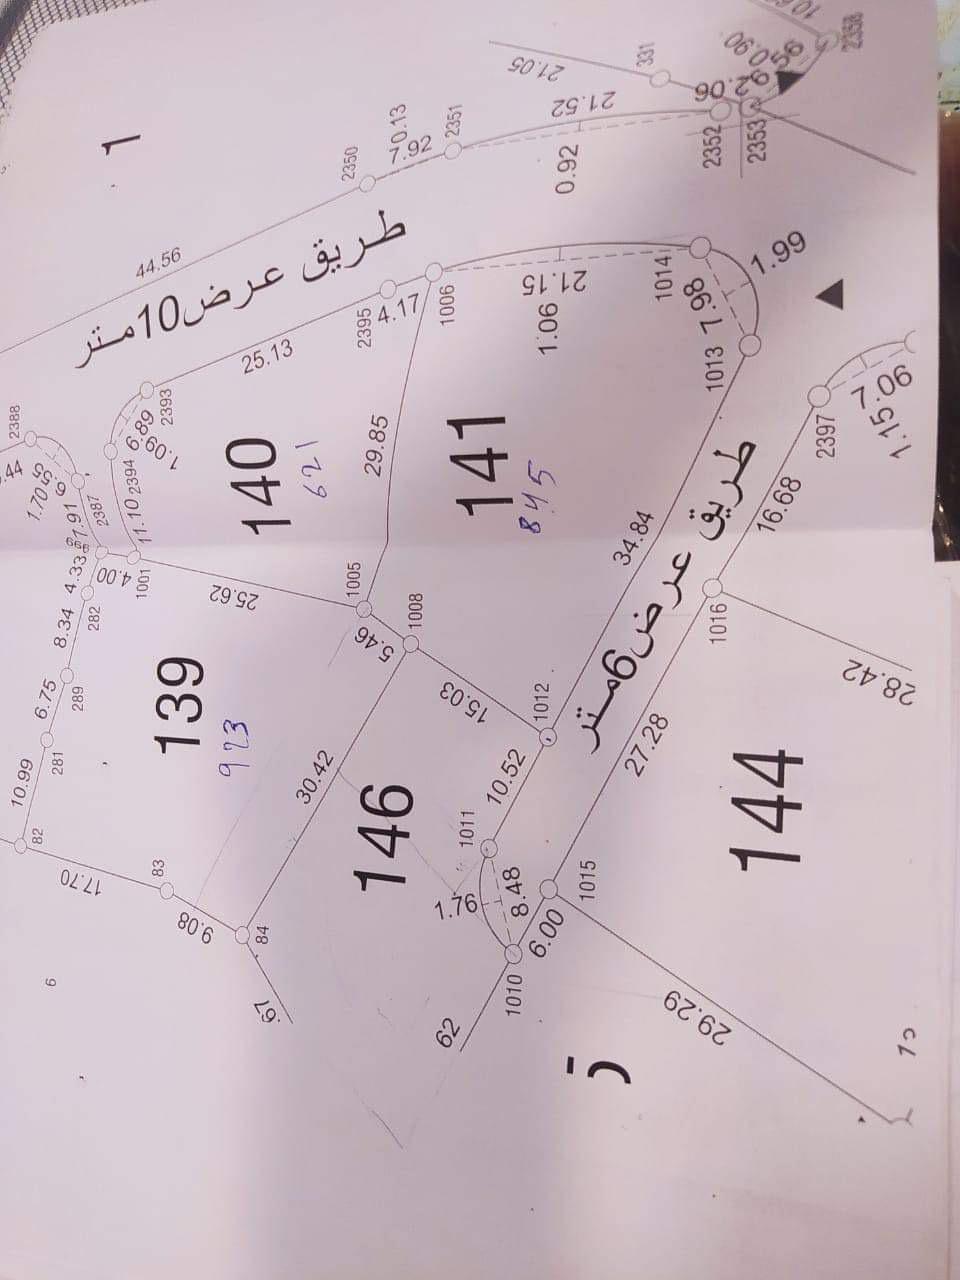 1
10.6
2358
0.90
6.56
331
21.05
2.06
2353
2352
21.52
0.92
2351
0.13
7.92
2350
44.56
طريق عرض10متر
1.99
1014
7.98
1013
21.15
1.06
1006
4.17
2395
25.13
2393
6.89
1.09
2394
11.10
2388
.44
1.70
2387
1.91
4.33
4.00
1001
140
621
29.85
141
845
7.06
1.15
2397
16.68
34.84
طريق عرض6متر
1016
28.42
25.62
1005
5.46
1008
8.34
282
6.75
289
281
10.99
82
139
923
15.03
1012
27.28
144
30.42
146
10.52
1011
17.70
83
9.08
84
1.76
8.48
1015
6.00
1010
6
67.
62
29.29
ز